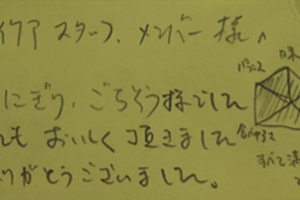 イケア スタッフ、メンバー 様へ
にぎり、ごちそう様でした
ても おいしく 頂きました
りがとうございました。
味
バランス
食べやすさ
すべて満